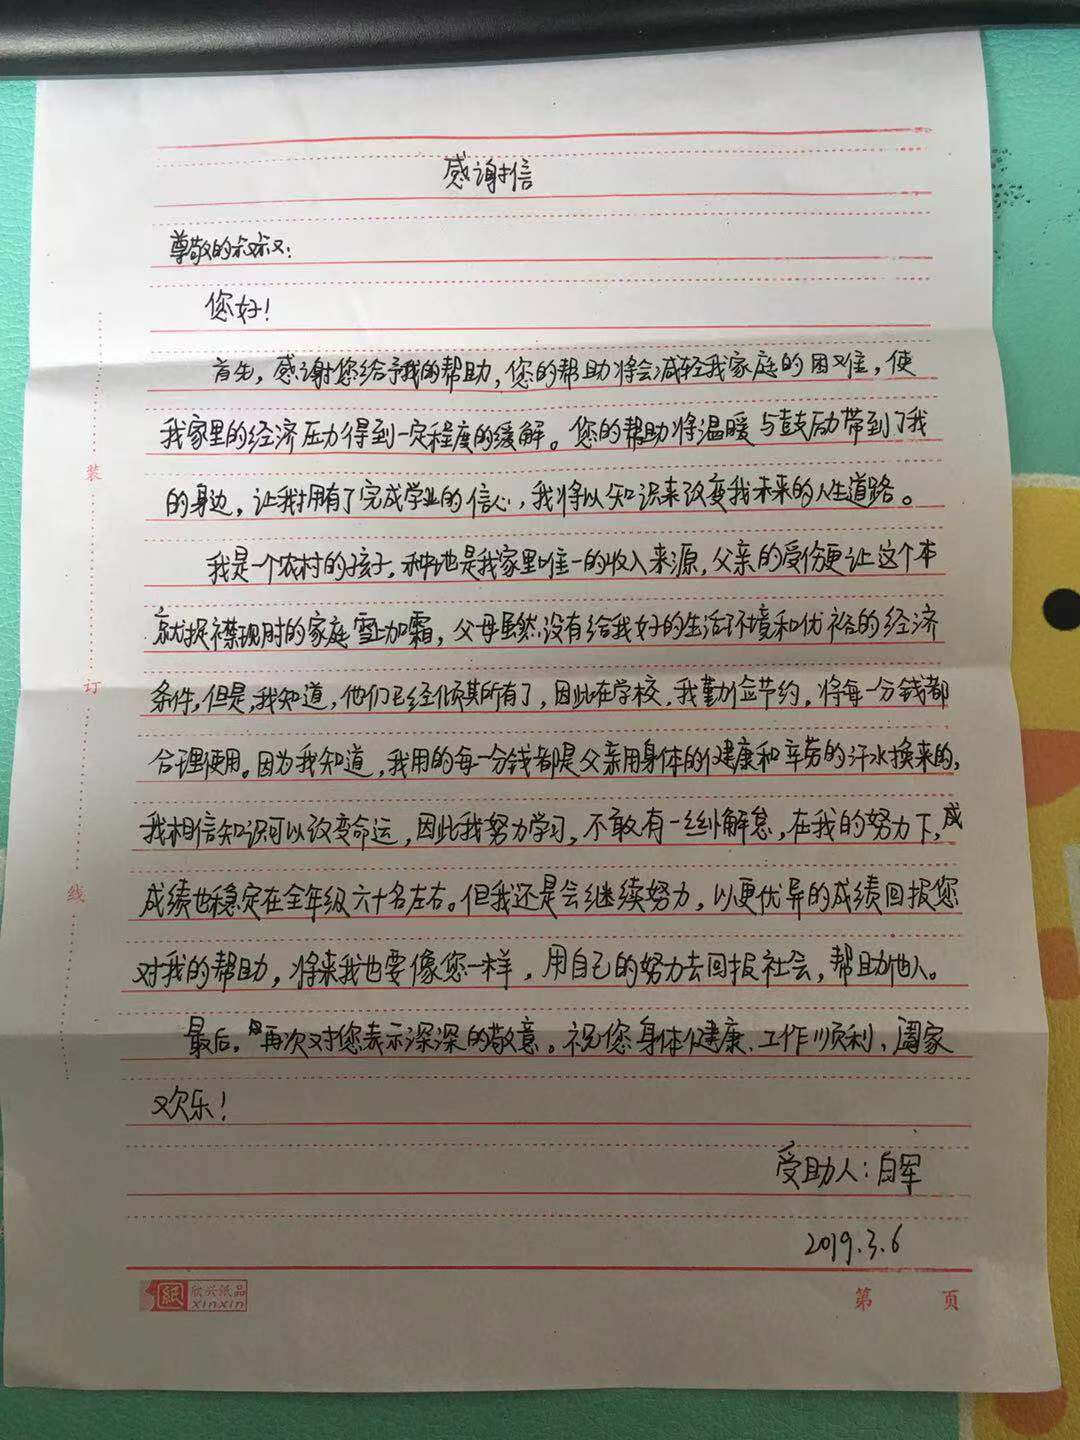 感谢信
尊敬的叔叔:
您好!
首先,感谢您给予我的帮助,您的帮助将会减轻我家庭的困难,使
我家里的经济压力得到一定程度的缓解。您的帮助将温暖与鼓励带到了我
的身边,让我拥有了完成学业的信心,我将以知识来改变我未来的人生道路。
我是一个农村的孩子,种地是我家里唯一的收入来源,父亲的受伤更让这个本
就捉襟现肘的家庭雪上加霜,父母虽然没有给我好的生活环境和优裕的经济
条件,但是,我知道,他们已经倾其所有了,因此在学校,我勤俭节约,将每一分钱都
合理使用。因为我知道,我用的每一分钱都是父亲用身体的健康和辛劳的汗水换来的,
我相信知识可以改变命运,因此我努力学习,不敢有一丝解怠,在我的努力下,成
成绩也稳定在全年级六十名左右。但我还是会继续努力,以更优异的成绩回报您
对我的帮助,将来我也要像您一样,用自己的努力去回报社会,帮助他人。
最后,再次对您表示深深的敬意。祝您身体健康、工作顺利、阖家
欢乐!
受助人:白军
2019.3.6
装
订
线
纸 欣兴纸品
xinxin
第 页